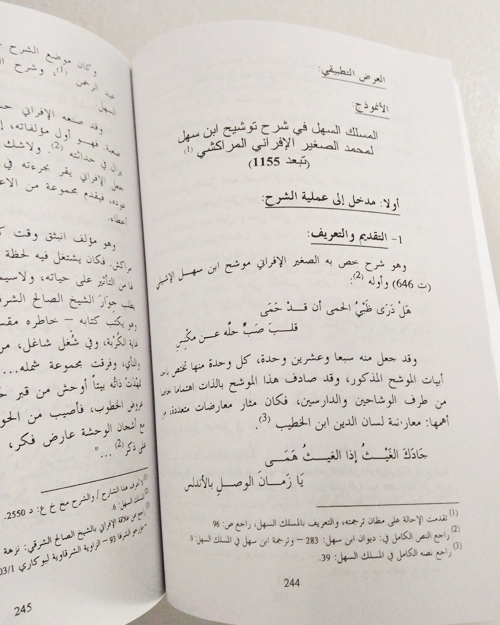 العرض التطبيقي:
الأنموذج:
المسلك السهل في شرح توشيح ابن سهل
لمحمد الصغير الإفراني المراكشي (1)
(تبعد 1155)
أولا: مدخل إلى عملية الشرح:
1- التقديم والتعريف:
وهو شرح خص به الصغير الإفراني موشح ابن سهل
(ت 646) وأوله (2):
هَلْ دَرَى ظَبْيُ الحمى أن قَدْ حَمَى
قلبَ صَبٍّ حلَّه عن مكْنِسِ
وقد جعل منه سبعا وعشرين وحدة، كل وحدة منها تختص
أبيات الموشح المذكور، وقد صادف هذا الموشح بالذات اهتماما
من طرف الوشاحين والدارسين، فكان مثار معارضات متعددة،
أهمها: معارضة لسان الدين ابن الخطيب (3).
جَادَكَ الغَيْثُ إذا الغيثُ هَمَى
يَا زَمَانَ الوصلِ بالأندلس
(1) تقدمت الإحالة على مظان ترجمته، والتعريف بالمسلك السهل، راجع ص: 96
(2) راجع النص الكامل في: ديوان ابن سهل: 283 - وترجمة ابن سهل في المسلك السهل
(3) راجع نصه الكامل في المسلك السهل: 39.
244
وكان موضع الشرح
عبد الرحمن (1)، وشرح
السهل
وقد صنعه الإفراني
صنعة. فهو أول مؤلفاته،
يزال في حداثته (2). ولاشك
جعل الإفراني يقر بجرءته في
عوده، فيقدم مجموعة من
أخطاء.
وهو مؤلف انبثق وقت
مراكش، فكان يشتغل فيه لحظة
من التأثير على حياته، ولاسيما
يطلب جوار الشيخ الصالح
وهو يكتب كتابه - خاطره
غاية الكُرْبة، وفي شُغل شاغل،
وفرقت مجموعة شمله...
بيتاً أوحش من قبر
الخطوب، فأصيب من
مع أشجان الوحشة عارض فكر،
على ذكر (2) ..."
2550.
السهل: 6.
بالشيخ الصالح الشرقي: نزهة
93 - الزاوية الشرقاوية لبوكاري
245